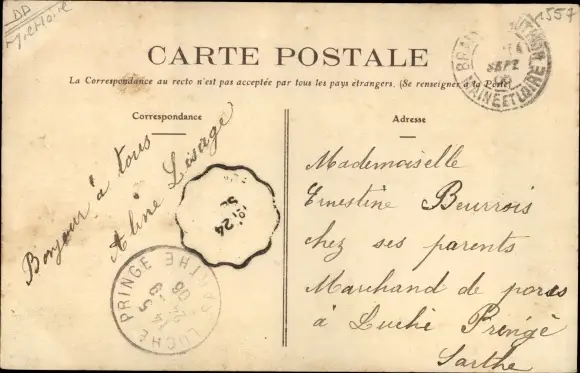 DD
1557
CARTE POSTALE
La Correspondance au recto n'est pas acceptée par tous les pays étrangers. (Se renseigner à la Poste)
Correspondance
Bonjour à tous
Aline Lesage
24
LUCHÉ PRINGÉ
SARTHE
14
5-9
06
Adresse
Mademoiselle
Ernestine Beurrois
chez ses parents
Marchand de porcs
à Luché Pringé
Sarthe
SEPT
MAINE ET LOIRE